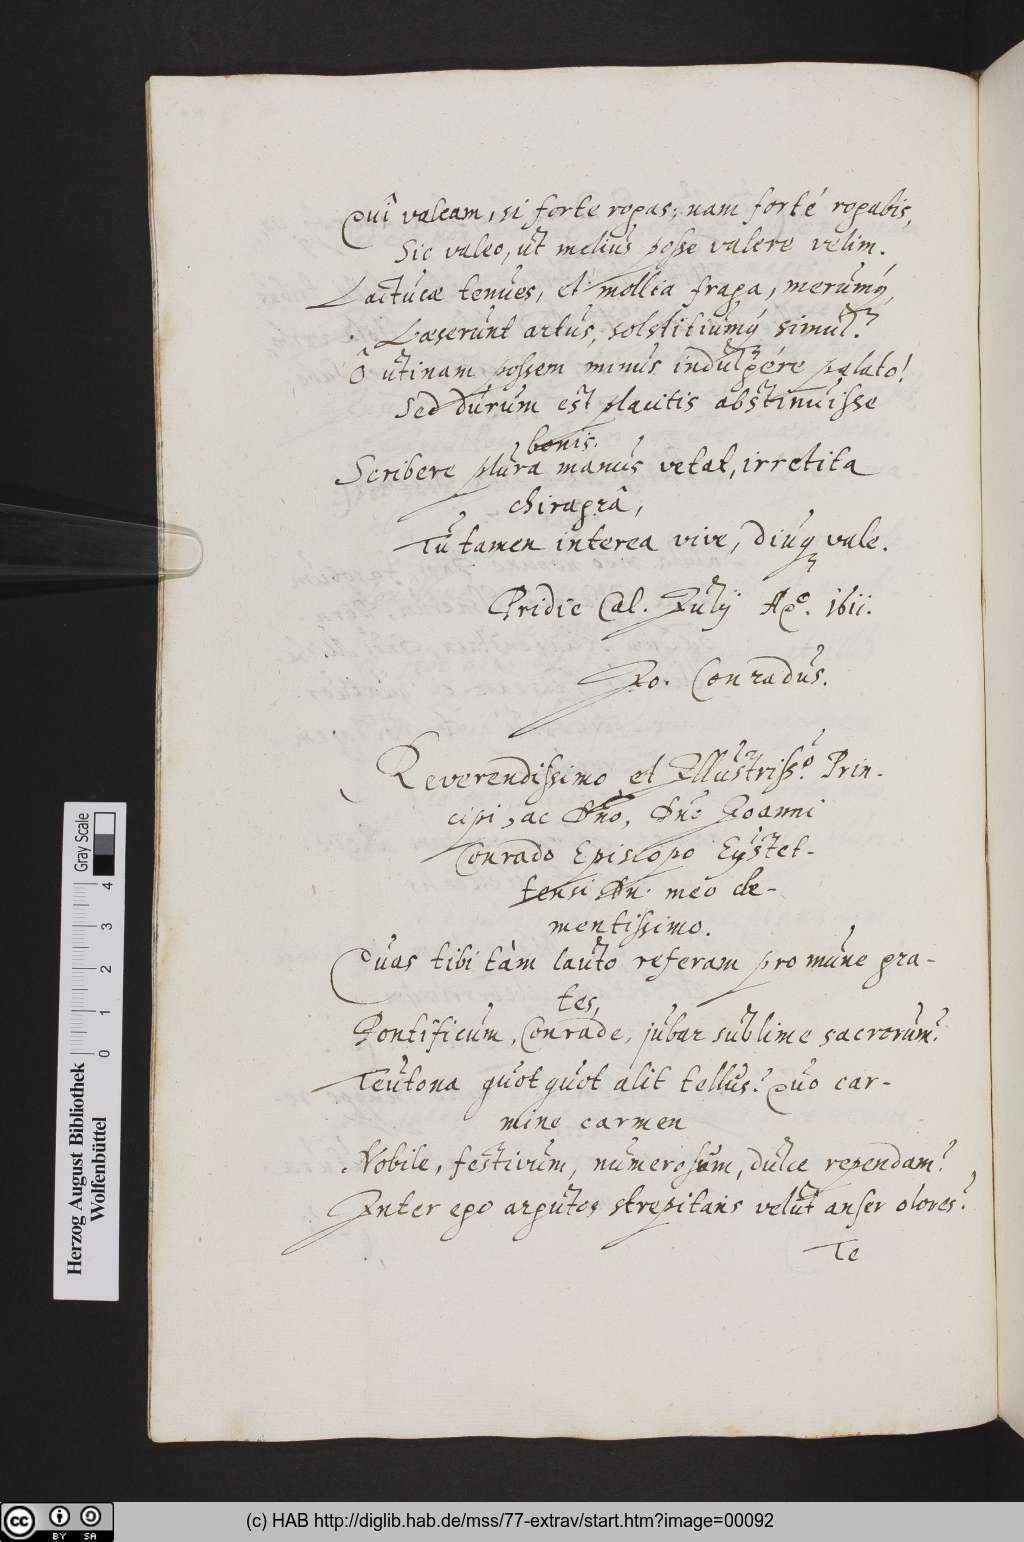 Quî valeam, si forte rogas, nam forté rogabis,
Sic valeo, ut melius posse valere velim.
Lactucæ tenues, et mollia fraga, merumq́,
Læserunt artus, solstitiumq́ simul.
Ô utinam possem minus indulgére palato!
Sed durum est placitis abstinuisse
bonis.
Scribere plura manus vetat, irretita
chiragrâ,
Tu tamen interea vive, diuq vale.
Pridie Cal. Julij Aº. 1611.
Jo. Conradus.
Reverendissimo et Illustrissº. Prin-
cipi, ac Dno, Dne Joanni
Conrado Episcopo Eystet-
tensi Dn. meo cle-
mentissimo.
Quas tibi tàm lauto referam pro mune gra-
tes,
Pontificum, Conrade, jubar sublime sacrorum?
Teutona quot quot alit tellus? Quo car-
mine carmen
Nobile, festivum, numerosum, dulce rependam?
Inter ego argutos strepitans velut anser olores?
Te
Herzog August Bibliothek
Wolfenbüttel
0 1 2 3 4
Gray Scale
cc BY SA
(c) HAB http://diglib.hab.de/mss/77-extrav/start.htm?image=00092